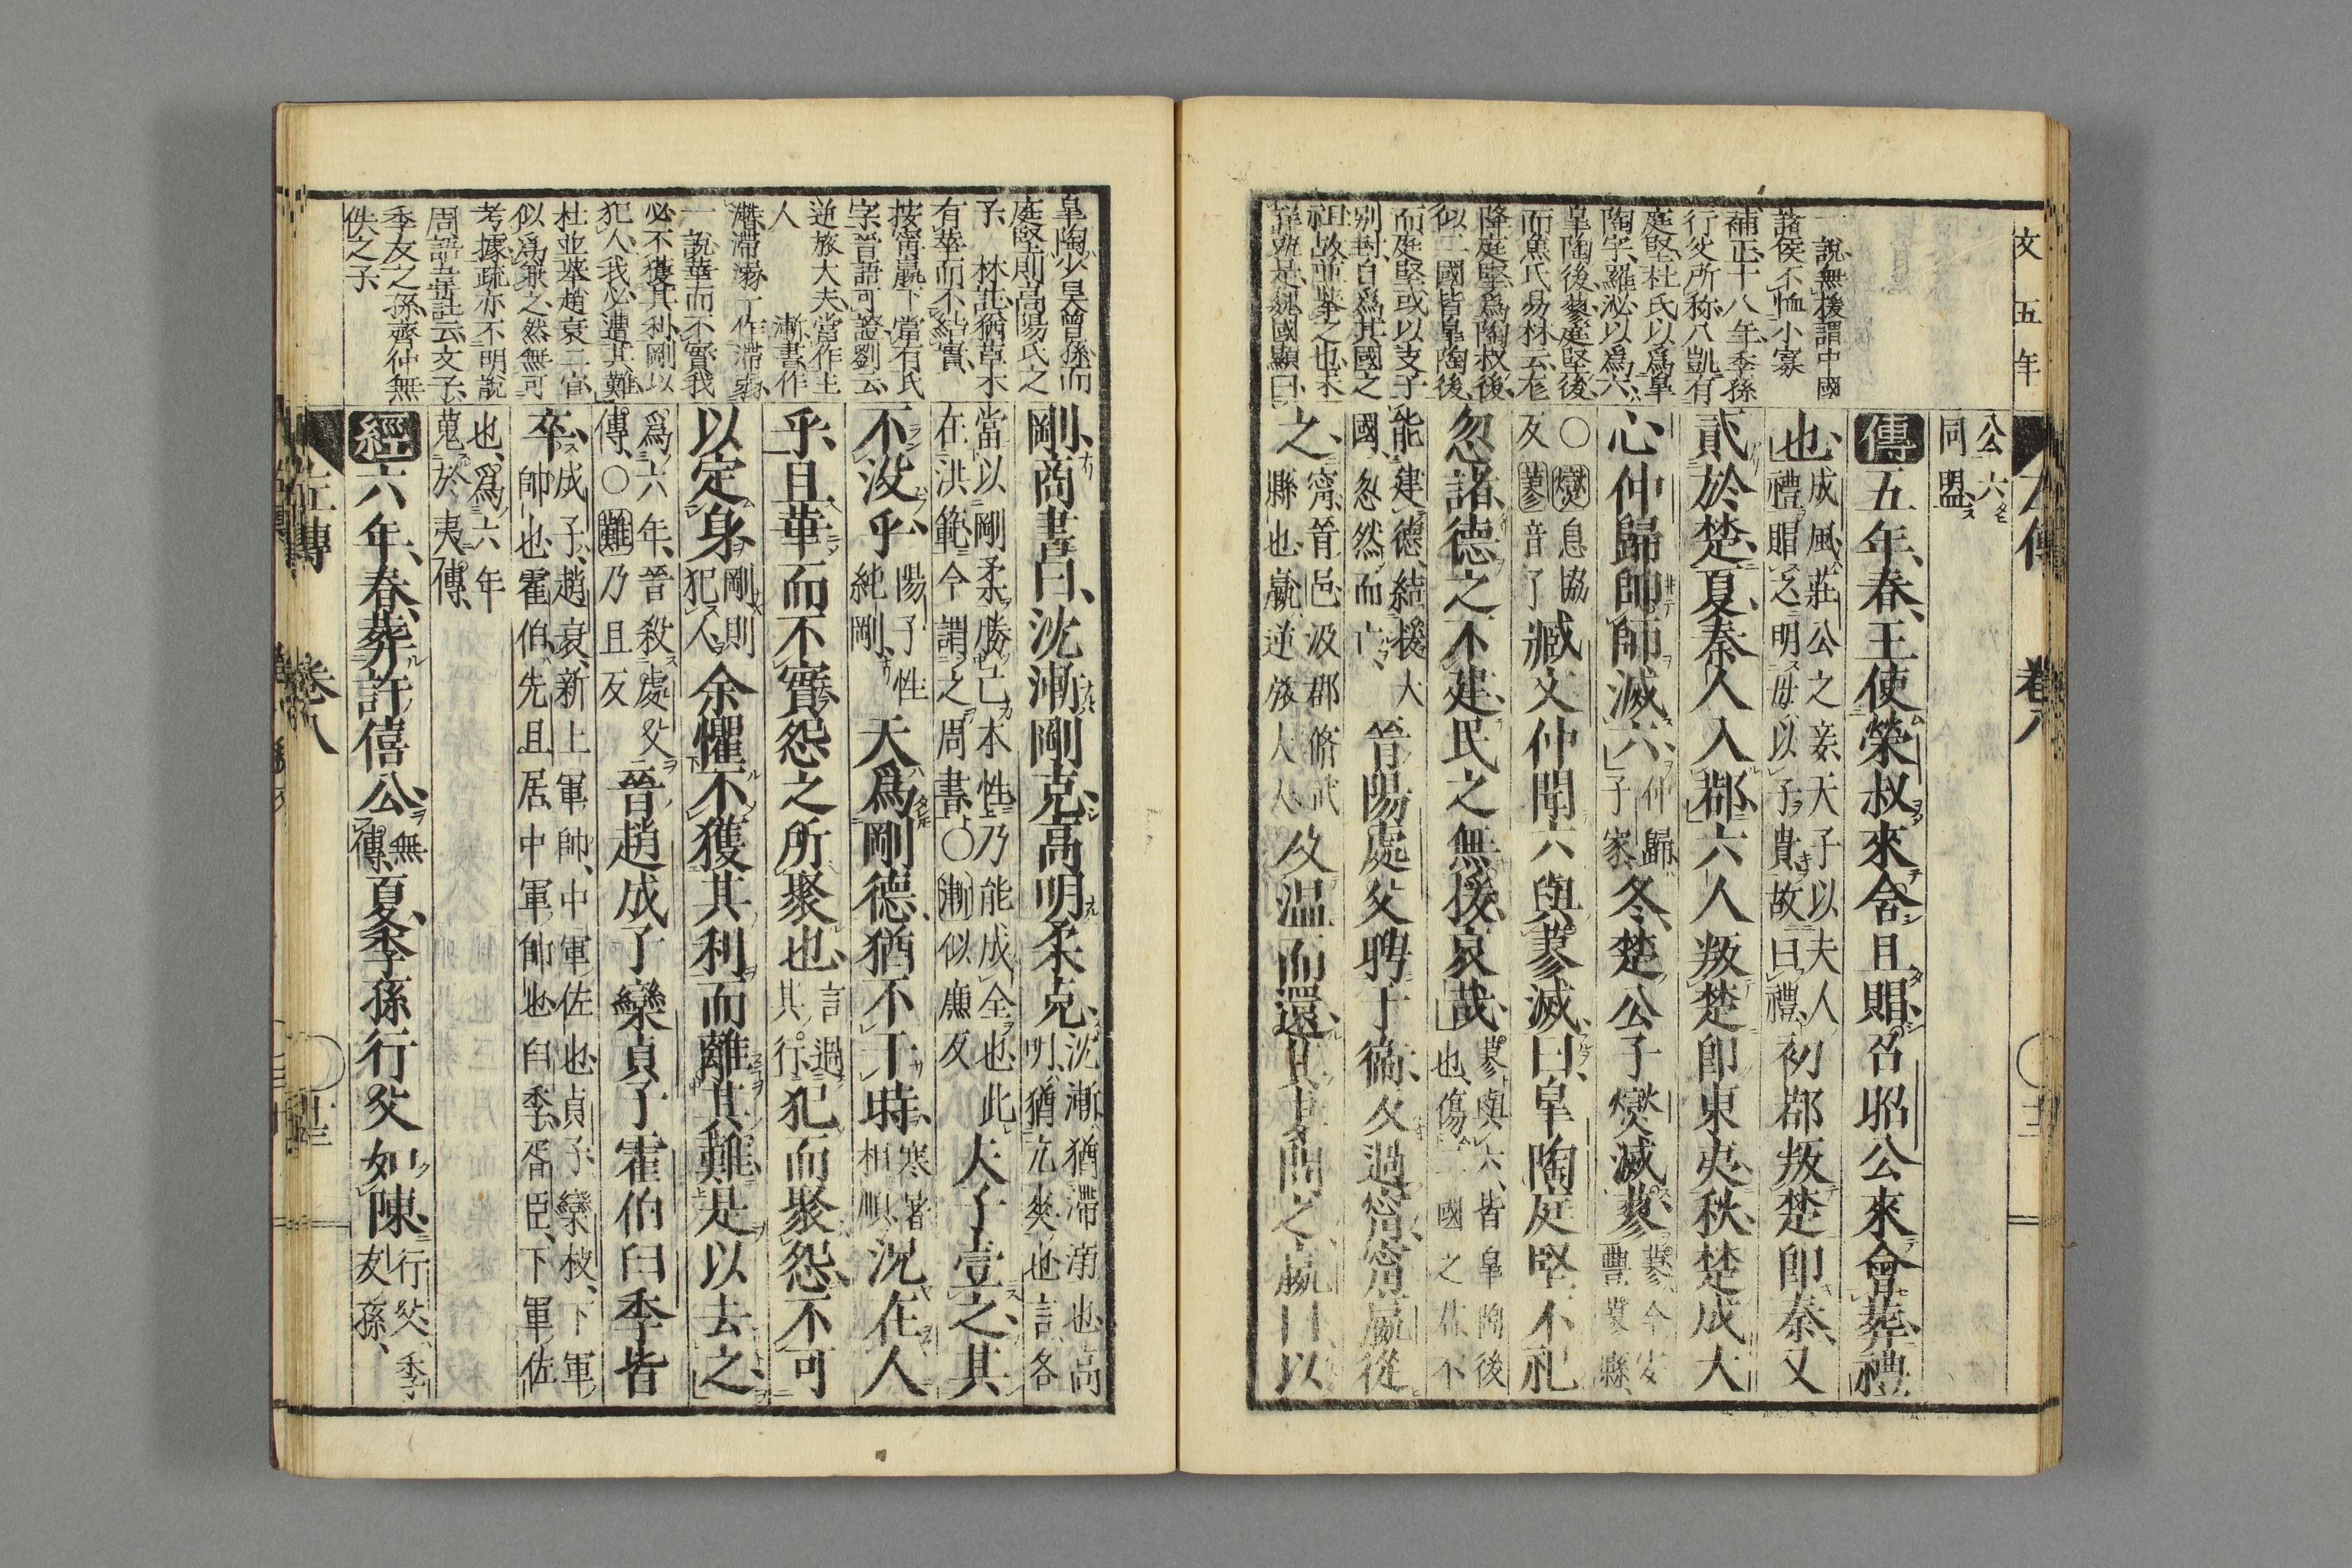 文五年
卷八
一說無援謂中國
諸侯不恤小寡
補正十八年季孫
行父所称八凱有
庭堅杜氏以爲皐
陶字羅泌以爲六
皐陶後蓼庭堅後
而焦氏易林云厖
降庭堅爲陶叔後
似二國皆皐陶後
而庭堅或以支子
別封自爲其國之
祖故並擧之也未
詳孰是魏國顯曰
公六同盟
傳五年春王使榮叔來含且賵召昭公來會葬禮
也成風莊公之妾天子以夫人禮賵之明母以子貴故曰禮初鄀叛楚卽秦又
貳於楚夏秦人入鄀六人叛楚卽東夷秋楚成大
心仲歸帥師滅六仲歸子家冬楚公子燮滅蓼蓼今安豐蓼縣
○燮息協反蓼音了臧文仲聞六與蓼滅曰皐陶庭堅不祀
忽諸德之不建民之無援哀哉蓼與六皆皐陶後也傷二國之君不
能建德結援大國忽然而亡晉陽處父聘于衞反過甯甯嬴從
之甯晉邑汲郡脩武縣也嬴逆旅大夫及温而還其妻問之嬴曰以
皐陶少昊曾孫而
庭堅則高陽氏之
子 林註猶草木
有華而不結實
按甯嬴下當有氏
字晉語可證劉云
逆旅大夫當作主
人 漸書作
潛滯溺一作滯弱
一說華而不實我
必不獲其利剛以
犯人我必遭其難
杜並擧趙衰二官
似爲兼之然無可
考據疏亦不明說
周語韋註云文子
季友之孫齊仲無
佚之子
剛商書曰沈漸剛克高明柔克沈漸猶滯溺也高明猶亢爽也言各
當以剛柔勝已本性乃能成全也此在洪範今謂之周書○漸似廉反夫子壹之其
不沒乎陽子性純剛天爲剛德猶不干時寒暑相順況在人
乎且華而不實怨之所聚也言過其行犯而聚怨不可
以定身剛則犯人余懼不獲其利而離其難是以去之
爲六年晉殺處父傳○難乃旦反晉趙成子欒貞子霍伯臼季皆
卒成子趙衰新上軍帥中軍佐也貞子欒枝下軍帥也霍伯先且居中軍帥也臼季胥臣下軍佐
也爲六年蒐於夷傳
經六年春葬許僖公無傳夏季孫行父如陳行父季友孫
左傳 卷八